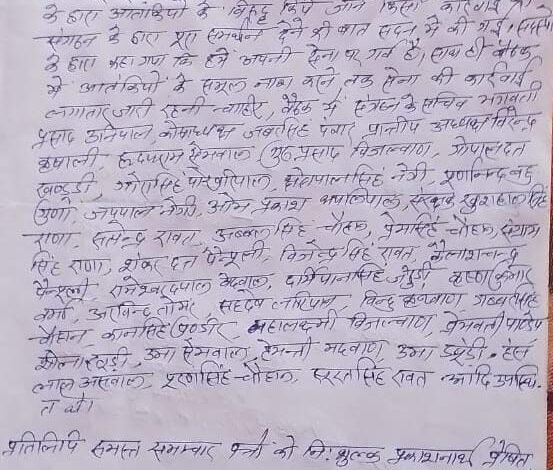 के द्वारा आतंकियों के विरूद्ध किये जाने किसी कार्रवाई
संगठन के द्वारा पूरा समर्थन देने की बात सदन में की गई।
के द्वारा कहा गया कि हमें अपनी सेना पर गर्व है, साथ ही बैठक
में आतंकियों के समूल नाश करने तक सेना की कार्रवाई
लगातार जारी रहनी चाहिए, बैठक में संगठन के सचिव भगवती
प्रसाद उनियाल, कोषाध्यक्ष जबर सिंह पंवार, प्रान्तीय अध्यक्ष विरेन्द्र
कृषाली, सेमवाल, गुरु प्रसाद बिजल्वाण, गोपाल दत्त
खण्डूडी, सिंह पोखरियाल, सिंह नेगी,
जयपाल नेगी, ओम प्रकाश थपलियाल, संरक्षक खुशहाल सिंह
राणा, सतेन्द्र रावत, अब्बल सिंह चौहान, प्रेम सिंह चौहान, संग्राम
सिंह राणा, शंकर दत्त पैन्यूली, विजेन्द्र सिंह रावत, कैलाश चन्द्र
पैन्यूली, रामेश्वर दयाल सिंह कृष्ण कुमार
वर्मा, अरविन्द तोमर, विन्दु गब्बर सिंह
चौहान, कान सिंह पुण्डीर, महालक्ष्मी बिजल्वाण, प्रेमवती पाण्डेय
उमा सेमवाल, हेमन्ती उमा हंस
लाल असवाल, पूरण सिंह चौहान, सूरत सिंह रावत आदि उपस्थि-
त थे।
प्रतिलिपि समस्त समाचार पत्रों को निःशुल्क प्रकाशनार्थ प्रेषित